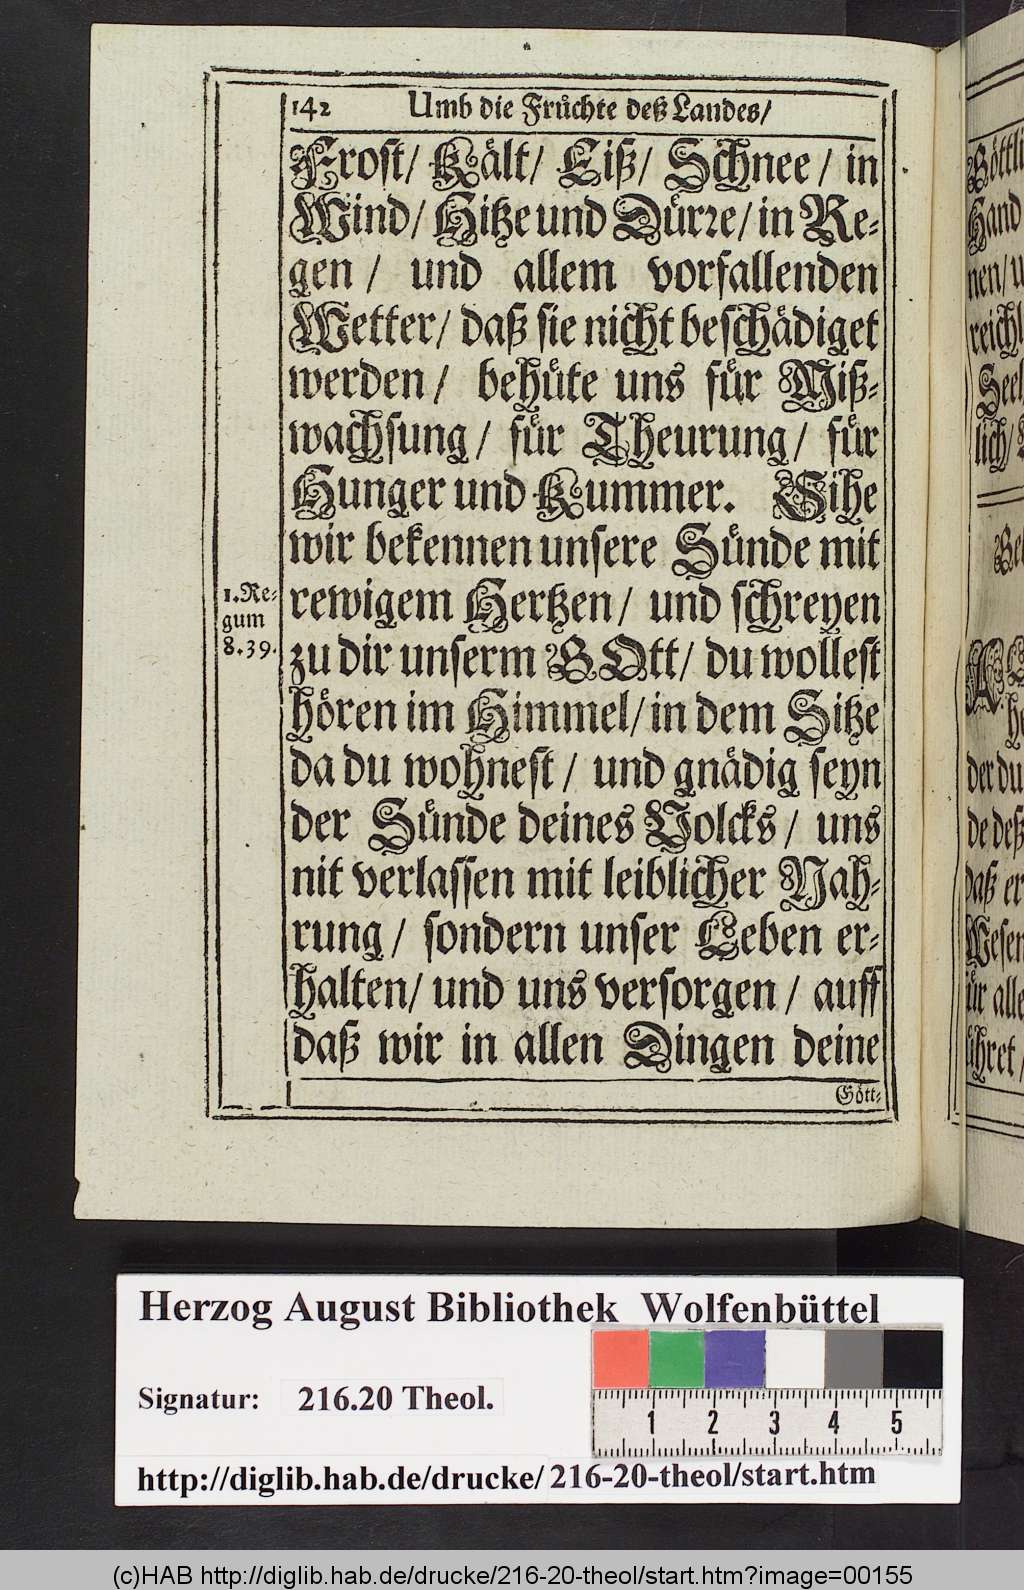 142 Umb die Früchte deß Landes/
Frost/ Kält/ Eiß/ Schnee/ in
Wind/ Hitze und Dürre/ in Re-
gen/ und allem vorfallenden
Wetter/ daß sie nicht beschädiget
werden/ behüte uns für Miß-
wachsung/ für Theurung/ für
Hunger und Kummer. Sihe
wir bekennen unsere Sünde mit
rewigem Hertzen/ und schreyen
zu dir unserm GOtt/ du wollest
hören im Himmel/ in dem Sitze
da du wohnest/ und gnädig seyn
der Sünde deines Volcks/ uns
nit verlassen mit leiblicher Nah-
rung/ sondern unser Leben er-
halten/ und uns versorgen/ auff
daß wir in allen Dingen deine
Gött-
1.Re-
gum
8.39.
Göttli
Hand
nen/ u
reichl
Seel
lich/
der du
de deß
daß er
Wesen
für alle
ühret/
Herzog August Bibliothek Wolfenbüttel
Signatur: 216.20 Theol.
1 2 3 4 5
http://diglib.hab.de/drucke/216-20-theol/start.htm
(c)HAB http://diglib.hab.de/drucke/216-20-theol/start.htm?image=00155